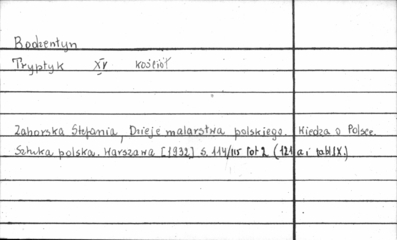 Bodzentyn
Tryptyk XV kościół
Zahorska Stefania, Dzieje malarstwa polskiego. Wiedza o Polsce.
Sztuka polska. Warszawa [1932] s. 114/115 fot 2 (121 a i tabl IX.)